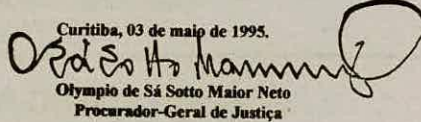 Curitiba, 03 de maio de 1995.
Olympio de Sá Sotto Maior Neto
Procurador-Geral de Justiça